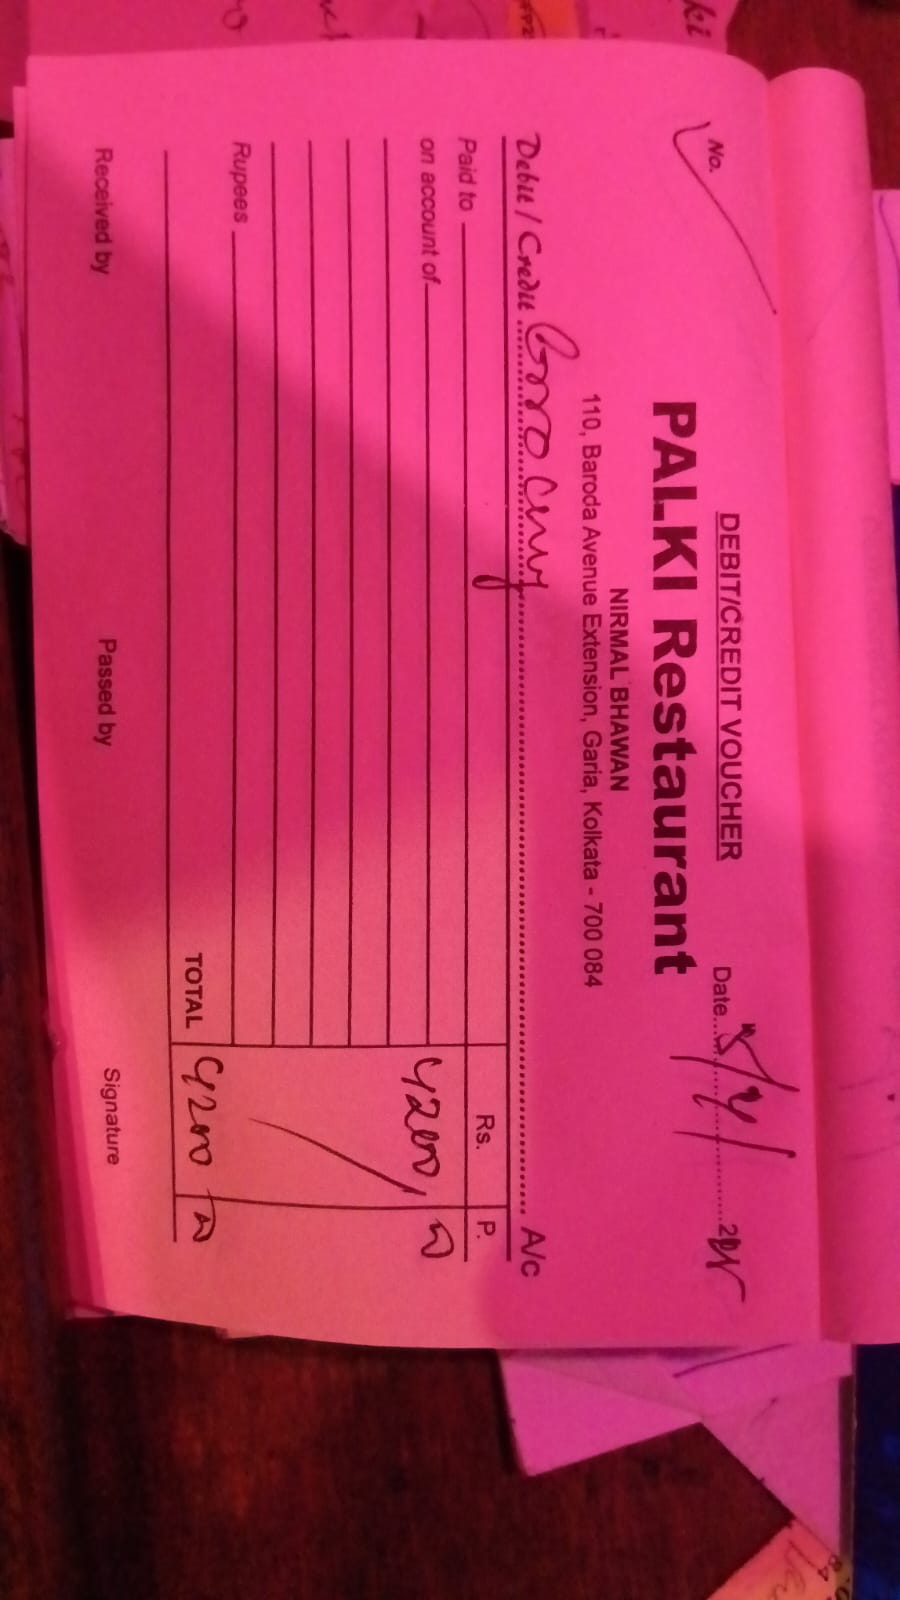 DEBIT/CREDIT VOUCHER
No. Date
PALKI Restaurant
NIRMAL BHAWAN
110, Baroda Avenue Extension, Garia, Kolkata - 700 084
Debit / Credit A/c
Paid to Rs. P.
on account of 4200
Rupees
TOTAL 4200
Received by Passed by Signature